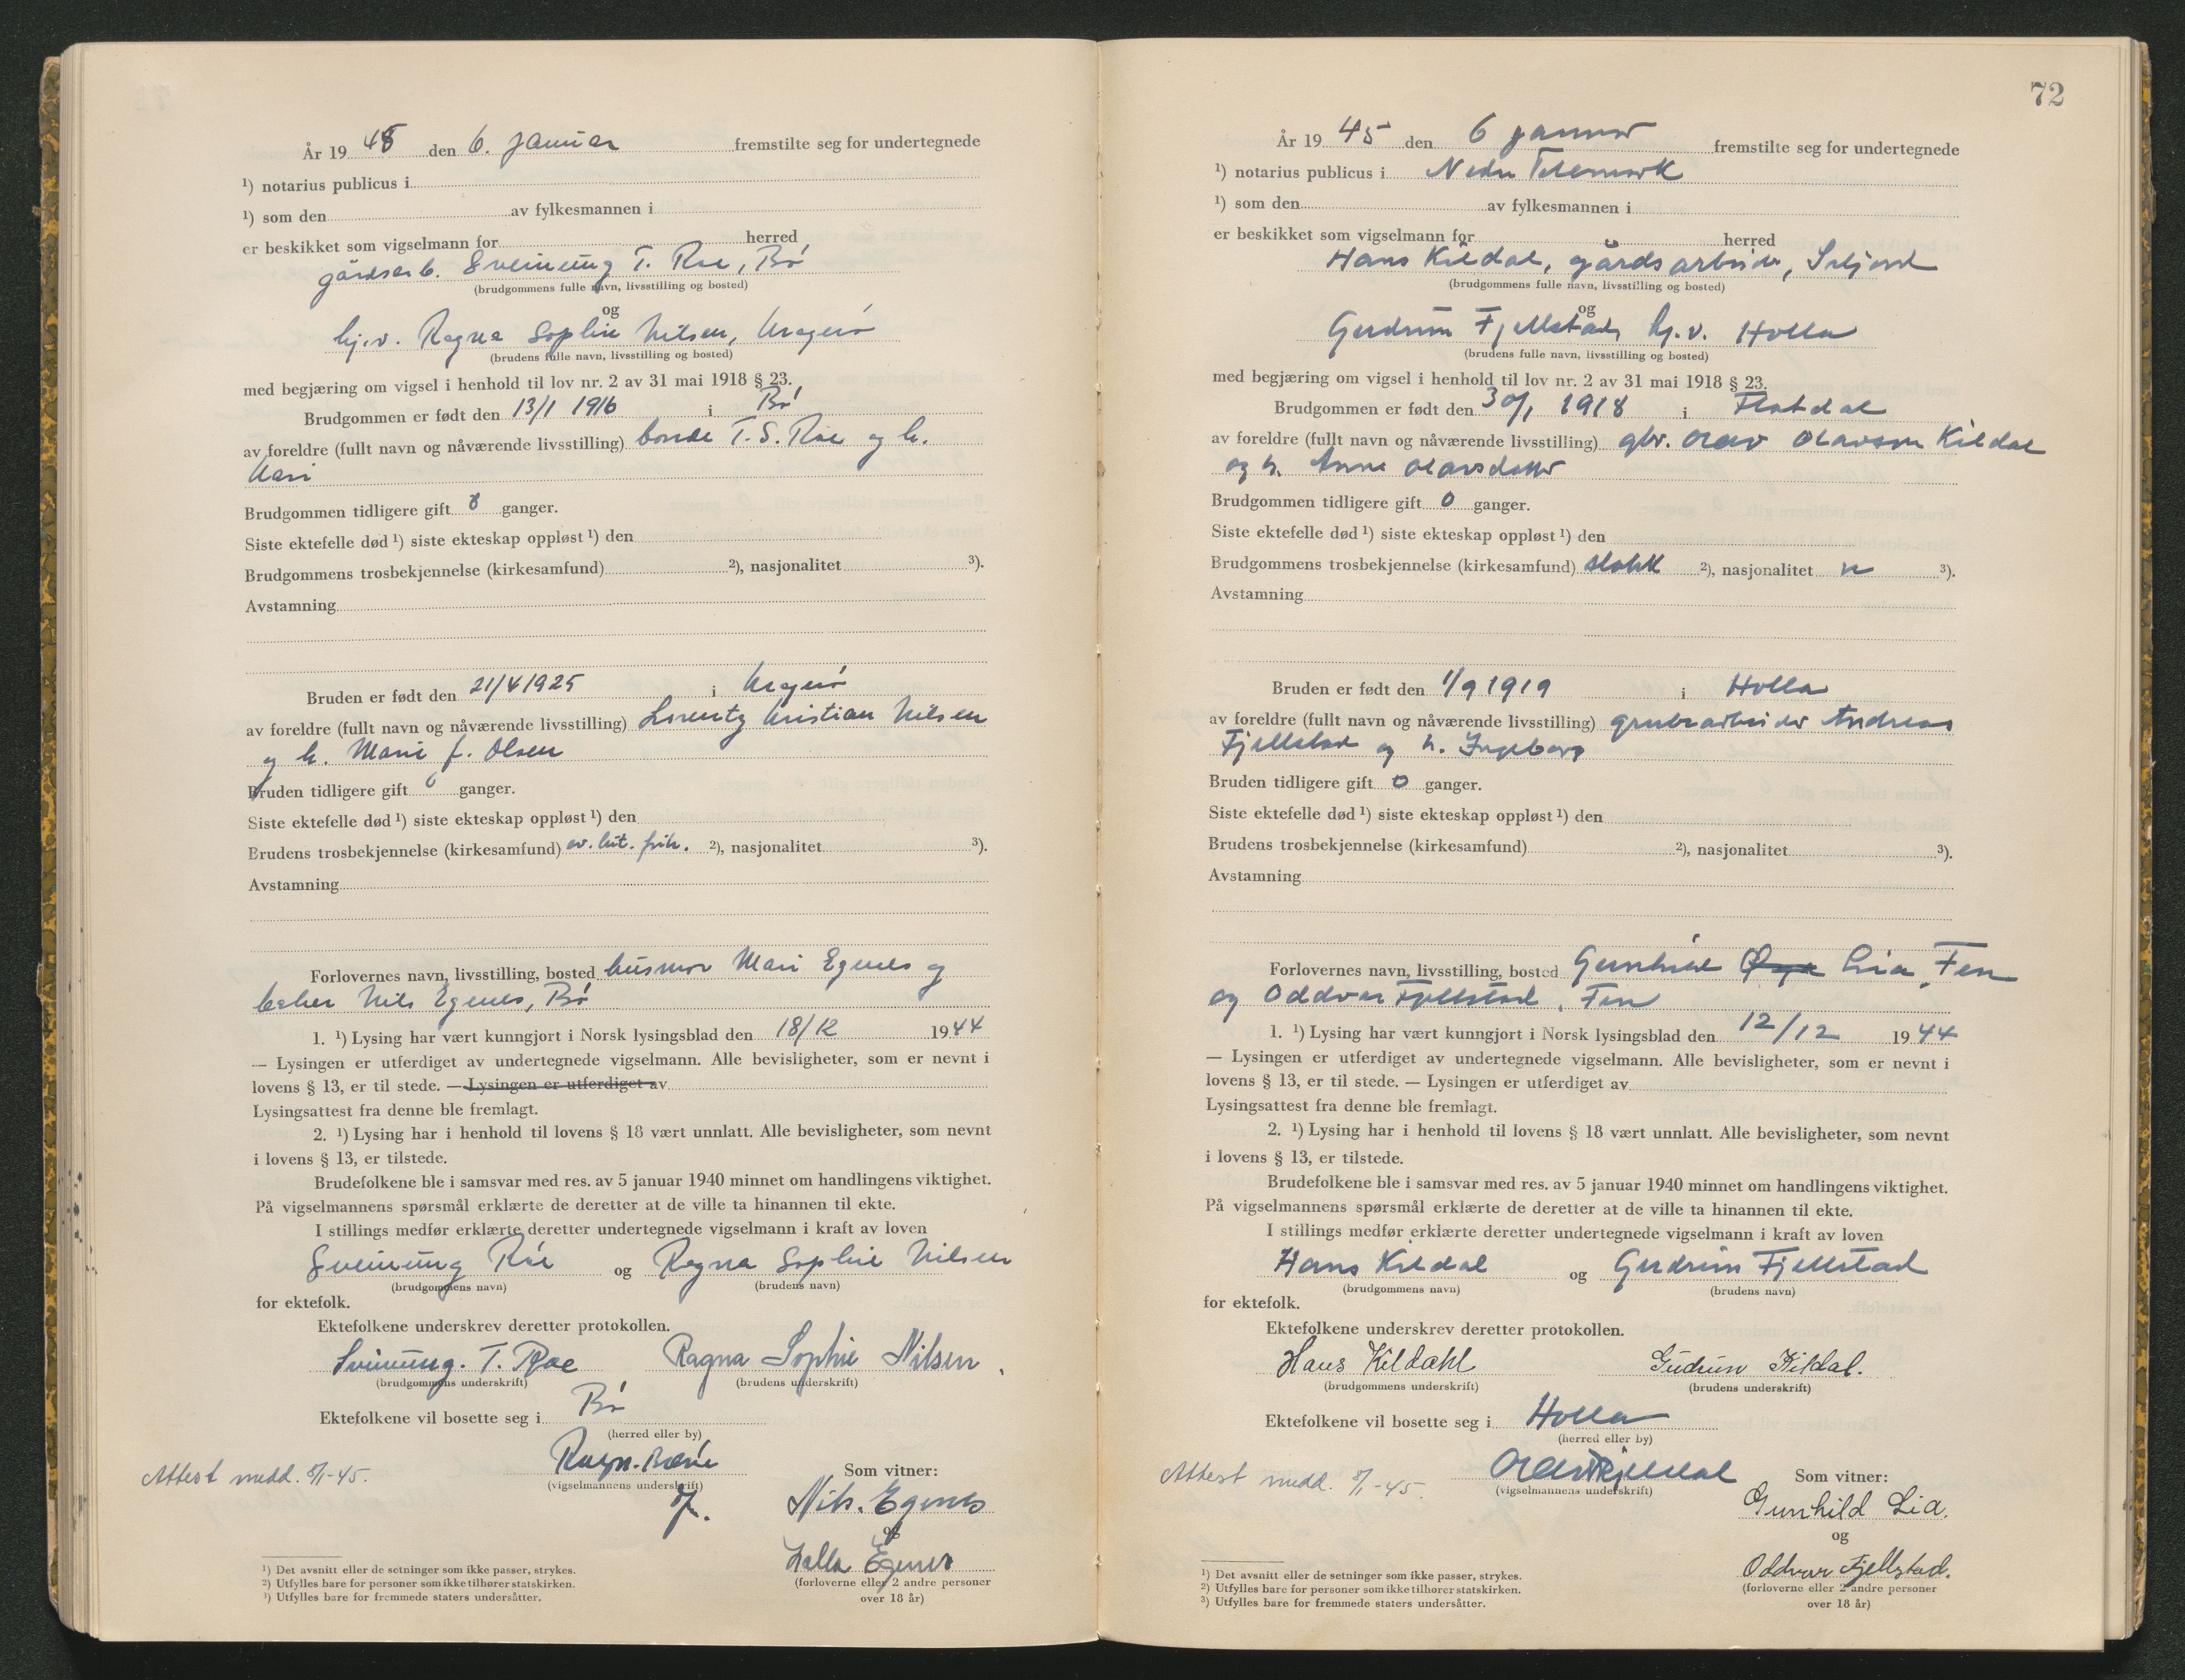 År 19 45 den 6. januar fremstilte seg for undertegnede
¹) notarius publicus i
¹) som den av fylkesmannen i
er beskikket som vigselmann for herred
gårdsarb. Sveinung T. Roe, Bø
(brudgommens fulle navn, livsstilling og bosted)
og
hj.v. Ragna Sophie Nilsen, Kragerø
(brudens fulle navn, livsstilling og bosted)
med begjæring om vigsel i henhold til lov nr. 2 av 31 mai 1918 § 23.
Brudgommen er født den 13/1 1916 i Bø
av foreldre (fullt navn og nåværende livsstilling) bonde T. S. Roe og h.
Kari
Brudgommen tidligere gift 0 ganger.
Siste ektefelle død ¹) siste ekteskap oppløst ¹) den
Brudgommens trosbekjennelse (kirkesamfund) ²), nasjonalitet ³).
Avstamning
Bruden er født den 21/4 1925 i Kragerø
av foreldre (fullt navn og nåværende livsstilling) Lorentz Kristian Nilsen
og h. Marie f. Olsen
Bruden tidligere gift 0 ganger.
Siste ektefelle død ¹) siste ekteskap oppløst ¹) den
Brudens trosbekjennelse (kirkesamfund) ev. lut. frik. ²), nasjonalitet ³).
Avstamning
Forlovernes navn, livsstilling, bosted husmor Mari Egenes og
baker Nils Egenes, Bø
1. ¹) Lysing har vært kunngjort i Norsk lysingsblad den 18/12 1944
— Lysingen er utferdiget av undertegnede vigselmann. Alle bevisligheter, som er nevnt i
lovens § 13, er til stede. — Lysingen er utferdiget av
Lysingsattest fra denne ble fremlagt.
2. ¹) Lysing har i henhold til lovens § 18 vært unnlatt. Alle bevisligheter, som nevnt
i lovens § 13, er tilstede.
Brudefolkene ble i samsvar med res. av 5 januar 1940 minnet om handlingens viktighet.
På vigselmannens spørsmål erklærte de deretter at de ville ta hinannen til ekte.
I stillings medfør erklærte deretter undertegnede vigselmann i kraft av loven
Sveinung Roe og Ragna Sophie Nilsen
(brudgommens navn) (brudens navn)
for ektefolk.
Ektefolkene underskrev deretter protokollen.
Sveinung. T. Roe Ragna Sophie Nilsen.
(brudgommens underskrift) (brudens underskrift)
Ektefolkene vil bosette seg i Bø
(herred eller by)
Attest medd. 8/1-45.
(vigselmannens underskrift)
Som vitner:
Nils. Egenes
og
Egenes
(forloverne eller 2 andre personer
over 18 år)
¹) Det avsnitt eller de setninger som ikke passer, strykes.
²) Utfylles bare for personer som ikke tilhører statskirken.
³) Utfylles bare for fremmede staters undersåtter.
72
År 19 45 den 6 januar fremstilte seg for undertegnede
¹) notarius publicus i Nedre Telemark
¹) som den av fylkesmannen i
er beskikket som vigselmann for herred
Hans Kildal, gårdsarbeider, Seljord
(brudgommens fulle navn, livsstilling og bosted)
og
Gudrun Fjellstad, hj.v. Holla
(brudens fulle navn, livsstilling og bosted)
med begjæring om vigsel i henhold til lov nr. 2 av 31 mai 1918 § 23.
Brudgommen er født den 30/1 1918 i Flatdal
av foreldre (fullt navn og nåværende livsstilling) gbr. Olav Olavson Kildal
og h. Anne Olavsdatter
Brudgommen tidligere gift 0 ganger.
Siste ektefelle død ¹) siste ekteskap oppløst ¹) den
Brudgommens trosbekjennelse (kirkesamfund) statsk ²), nasjonalitet n ³).
Avstamning
Bruden er født den 1/9 1919 i Holla
av foreldre (fullt navn og nåværende livsstilling) grubearbeider Andreas
Fjellstad og h. Ingeborg
Bruden tidligere gift 0 ganger.
Siste ektefelle død ¹) siste ekteskap oppløst ¹) den
Brudens trosbekjennelse (kirkesamfund) ²), nasjonalitet ³).
Avstamning
Forlovernes navn, livsstilling, bosted Gunhild Lia, Fen
og Oddvar Fjellstad, Fen
1. ¹) Lysing har vært kunngjort i Norsk lysingsblad den 12/12 1944
— Lysingen er utferdiget av undertegnede vigselmann. Alle bevisligheter, som er nevnt i
lovens § 13, er til stede. — Lysingen er utferdiget av
Lysingsattest fra denne ble fremlagt.
2. ¹) Lysing har i henhold til lovens § 18 vært unnlatt. Alle bevisligheter, som nevnt
i lovens § 13, er tilstede.
Brudefolkene ble i samsvar med res. av 5 januar 1940 minnet om handlingens viktighet.
På vigselmannens spørsmål erklærte de deretter at de ville ta hinannen til ekte.
I stillings medfør erklærte deretter undertegnede vigselmann i kraft av loven
Hans Kildal og Gudrun Fjellstad
(brudgommens navn) (brudens navn)
for ektefolk.
Ektefolkene underskrev deretter protokollen.
Hans Kildahl Gudrun Kildal.
(brudgommens underskrift) (brudens underskrift)
Ektefolkene vil bosette seg i Holla
(herred eller by)
Attest medd. 8/1-45.
(vigselmannens underskrift)
Som vitner:
Gunhild Lia.
og
Oddvar Fjellstad.
(forloverne eller 2 andre personer
over 18 år)
¹) Det avsnitt eller de setninger som ikke passer, strykes.
²) Utfylles bare for personer som ikke tilhører statskirken.
³) Utfylles bare for fremmede staters undersåtter.